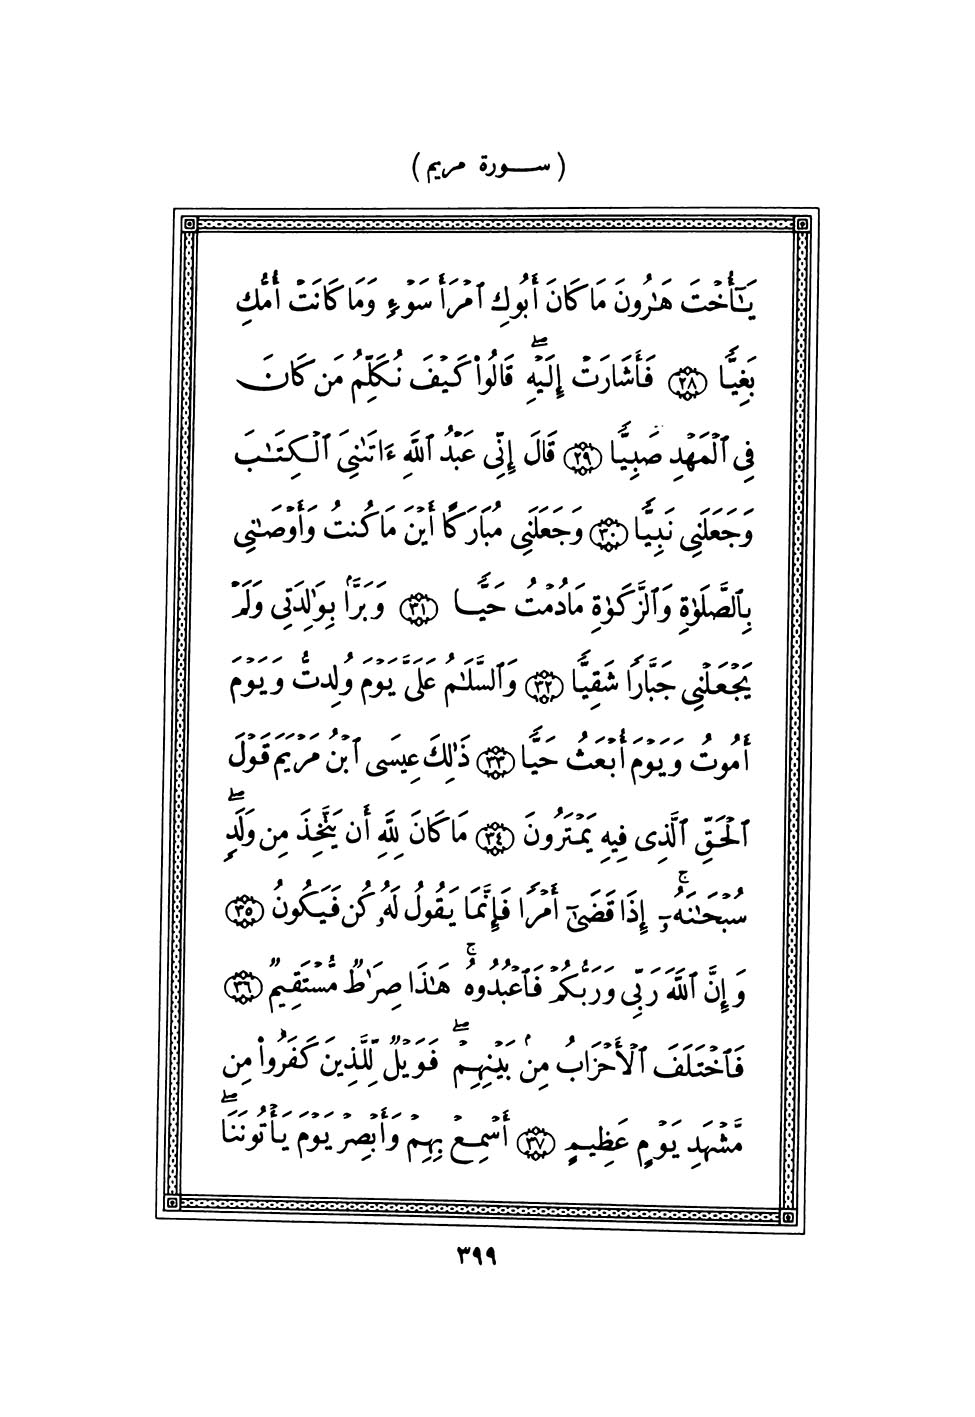 ( ســـورة مريم )
يَـٰٓأُخْتَ هَـٰرُونَ مَا كَانَ أَبُوكِ ٱمْرَأَ سَوْءٍ وَمَا كَانَتْ أُمُّكِ
بَغِيًّا ﴿٢٨﴾ فَأَشَارَتْ إِلَيْهِ ۖ قَالُوا۟ كَيْفَ نُكَلِّمُ مَن كَانَ
فِى ٱلْمَهْدِ صَبِيًّا ﴿٢٩﴾ قَالَ إِنِّى عَبْدُ ٱللَّهِ ءَاتَىٰنِىَ ٱلْكِتَـٰبَ
وَجَعَلَنِى نَبِيًّا ﴿٣٠﴾ وَجَعَلَنِى مُبَارَكًا أَيْنَ مَا كُنتُ وَأَوْصَـٰنِى
بِٱلصَّلَوٰةِ وَٱلزَّكَوٰةِ مَا دُمْتُ حَيًّا ﴿٣١﴾ وَبَرًّۢا بِوَٰلِدَتِى وَلَمْ
يَجْعَلْنِى جَبَّارًا شَقِيًّا ﴿٣٢﴾ وَٱلسَّلَـٰمُ عَلَىَّ يَوْمَ وُلِدتُّ وَيَوْمَ
أَمُوتُ وَيَوْمَ أُبْعَثُ حَيًّا ﴿٣٣﴾ ذَٰلِكَ عِيسَى ٱبْنُ مَرْيَمَ قَوْلَ
ٱلْحَقِّ ٱلَّذِى فِيهِ يَمْتَرُونَ ﴿٣٤﴾ مَا كَانَ لِلَّهِ أَن يَتَّخِذَ مِن وَلَدٍ ۖ
سُبْحَـٰنَهُۥٓ ۚ إِذَا قَضَىٰٓ أَمْرًا فَإِنَّمَا يَقُولُ لَهُۥ كُن فَيَكُونُ ﴿٣٥﴾
وَإِنَّ ٱللَّهَ رَبِّى وَرَبُّكُمْ فَٱعْبُدُوهُ ۚ هَـٰذَا صِرَٰطٌ مُّسْتَقِيمٌ ﴿٣٦﴾
فَٱخْتَلَفَ ٱلْأَحْزَابُ مِنۢ بَيْنِهِمْ ۖ فَوَيْلٌ لِّلَّذِينَ كَفَرُوا۟ مِن
مَّشْهَدِ يَوْمٍ عَظِيمٍ ﴿٣٧﴾ أَسْمِعْ بِهِمْ وَأَبْصِرْ يَوْمَ يَأْتُونَنَا ۖ
٣٩٩